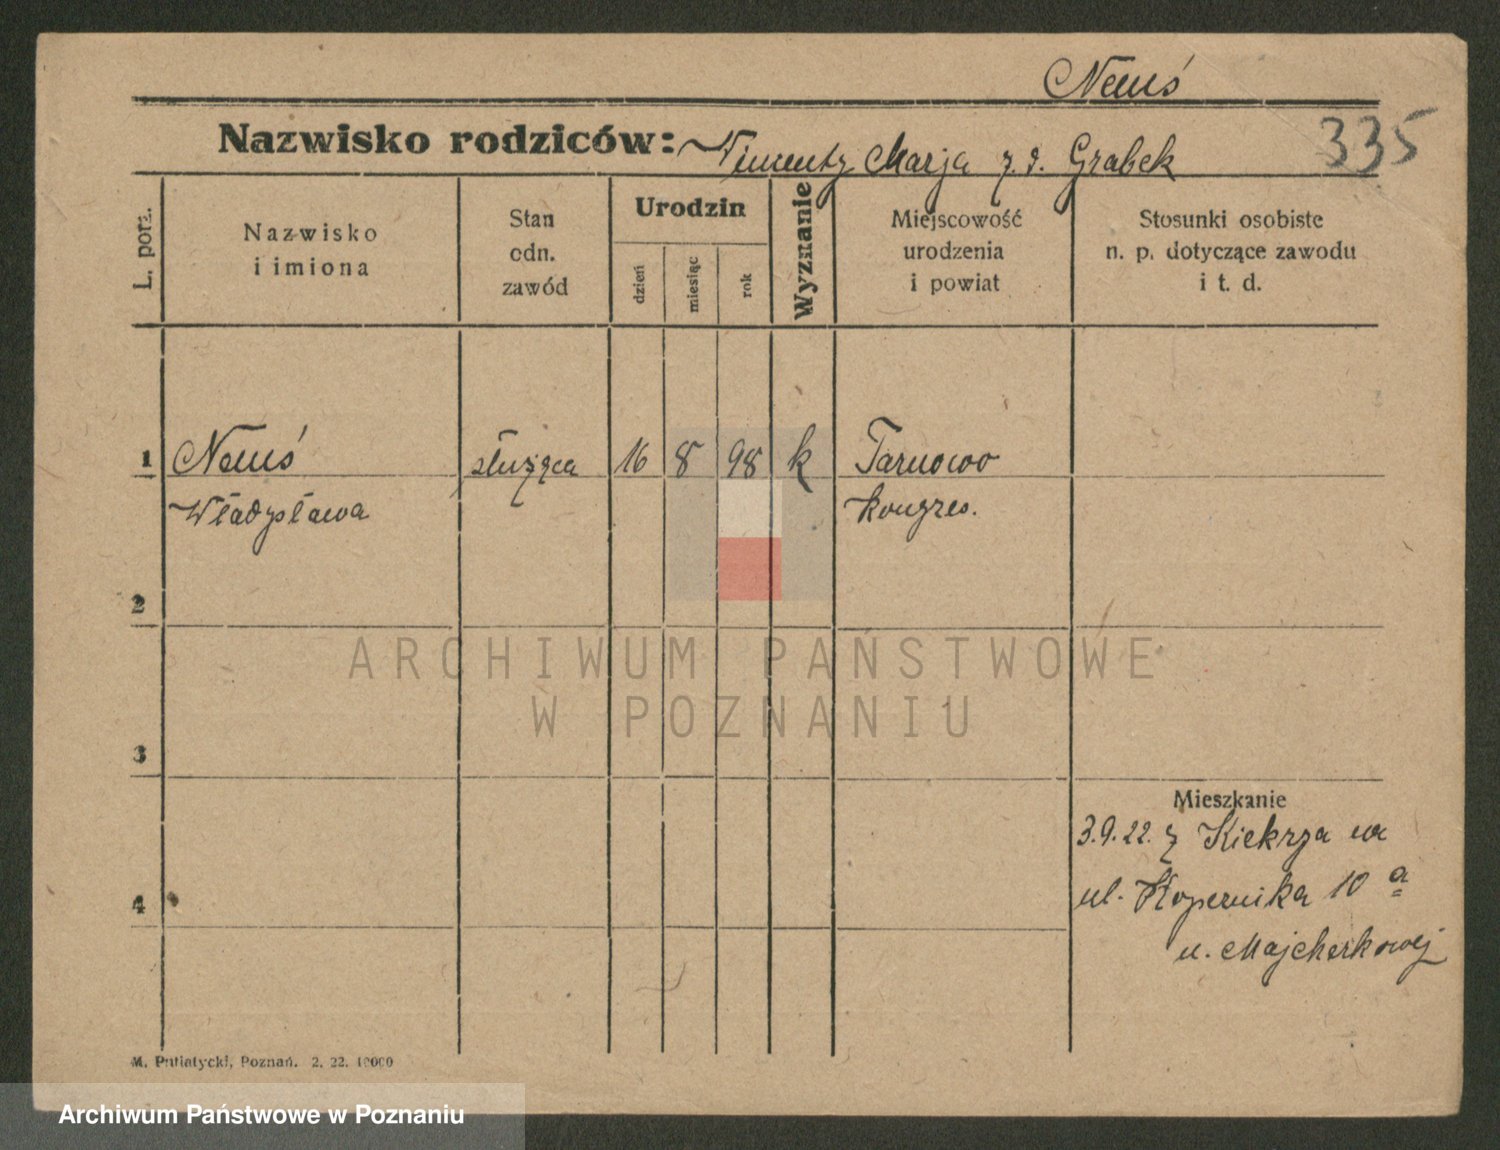 Neuś
Nazwisko rodziców: Wincenty Marja z. d. Grabek
335
L. porz.
Nazwisko
i imiona
Stan
odn.
zawód
Urodzin
dzień
miesiąc
rok
Wyznanie
Miejscowość
urodzenia
i powiat
Stosunki osobiste
n. p. dotyczące zawodu
i t. d.
1 Neuś służąca 16 8 98 k Tarnowo
Władysława kongres.
2
3
4
Mieszkanie
3.9.22. z Kiekrza na
ul. Kopernika 10 a
u. Majcherkowej
M. Putiatycki, Poznań. 2. 22. 10000
ARCHIWUM PAŃSTWOWE
W POZNANIU
Archiwum Państwowe w Poznaniu